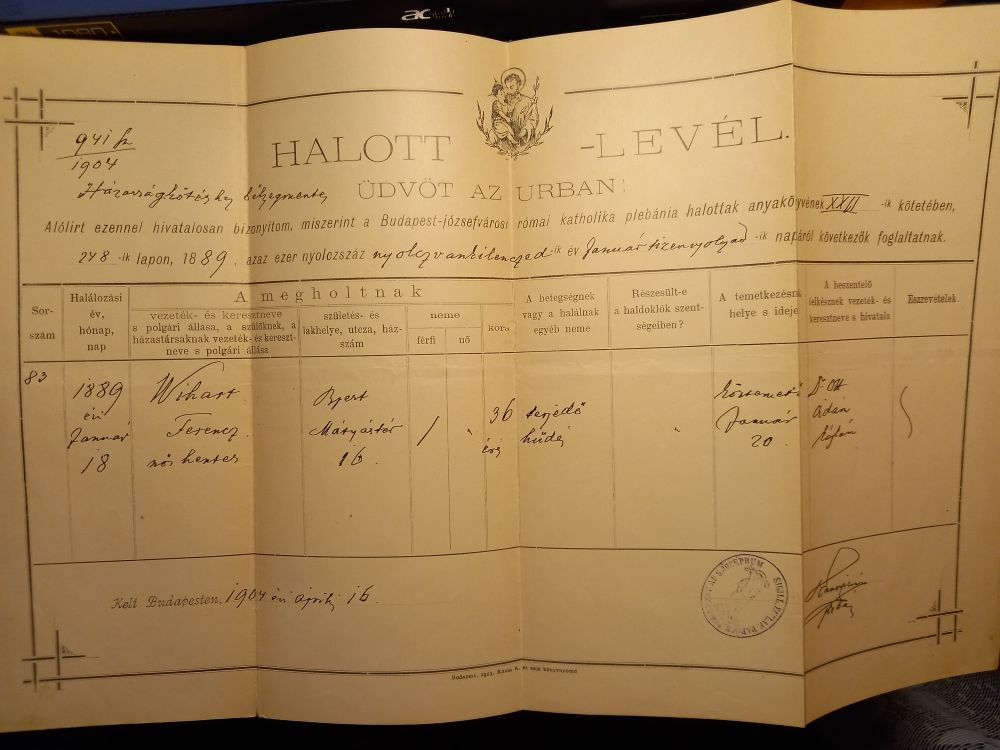 acer
941 sz
1904
HALOTT-LEVÉL.
Házasságkötéshez bélyegmentes
ÜDVÖT AZ URBAN!
Alólirt ezennel hivatalosan bizonyitom, miszerint a Budapest-józsefvárosi római katholika plebánia halottak anyakönyvének XXII -ik kötetében,
248 -ik lapon, 1889. azaz ezer nyolczszáz nyolczvankilenczed-ik év Január tizennyolczad -ik napáról következők foglaltatnak.
Sor-
szám
Halálozási
év,
hónap,
nap
A megholtnak
vezeték- és keresztneve
s polgári állása, a szülőknek, a
házastársaknak vezeték- és kereszt-
neve s polgári állása
születés- és
lakhelye, utcza, ház-
szám
neme
férfi
nő
kora
A betegségnek
vagy a halálnak
egyéb neme
Részesült-e
a haldoklók szent-
ségeiben?
A temetkezésnek
helye s ideje
A beszentelő
lelkésznek vezeték- és
keresztneve s hivatala
Észrevételek.
83
1889
évi
Január
18
Wihart
Ferencz
nős hentes
Bpest
Mátyástér
16.
/
"
36
éves
terjedő
hüdés
"
Január
20.
Dr Ott
Ádán
Kelt Budapesten, 1904 évi április 16.
Budapest, 1903.